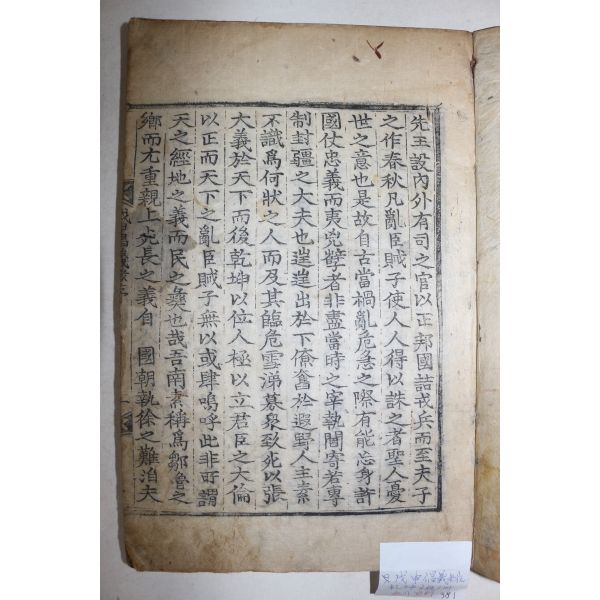 先王設內外有司之官以正邦國詰戎兵而至夫子
之作春秋凡亂臣賊子使人人得以誅之者聖人憂
世之意也是故自古當禍亂危急之際有能忘身許
國仗忠義而夷兇孼者非盡當時之宰執閫寄若專
制封疆之大夫也逞逞出於下僚奮於遐野人主素
不識爲何狀之人而及其臨危雪涕募衆致死以張
大義於天下而後乾坤以位人極以立君臣之大倫
以正而天下之亂臣賊子無以或肆嗚呼此非所謂
天之經地之義而民之彝也哉吾南素稱爲鄒魯之
鄉而尤重親上死長之義自 國朝執徐之難洎夫
戊申倡義